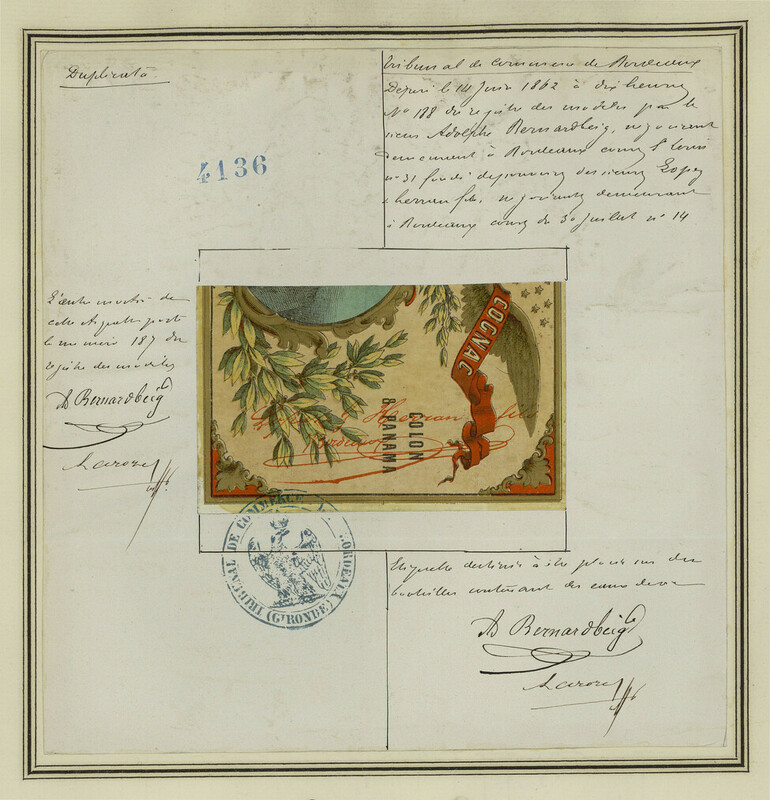 Duplicata
4136
Tribunal de commerce de Bordeaux
Depuis le 14 Juin 1862 à dix heures
No 188 du registre des modèles par le
sieur Adolphe Bernardbeig, négociant
demeurant à Bordeaux cours St Louis
no 31 fondé de pouvoirs des sieurs Lopez
& herran fils, négociants demeurant
à Bordeaux cours du 30 Juillet no 14
L'autre moitié de
cette étiquette porte
le numéro 187 du
registre des modèles
Ad Bernardbeig
COGNAC
COLON
& PANAMA
Lopez y Herran fils
Bordeaux
TRIBUNAL DE COMMERCE DE BORDEAUX
(GIRONDE)
Etiquette destinée à être placée sur des
bouteilles contenant des eaux de vie
Ad Bernardbeig